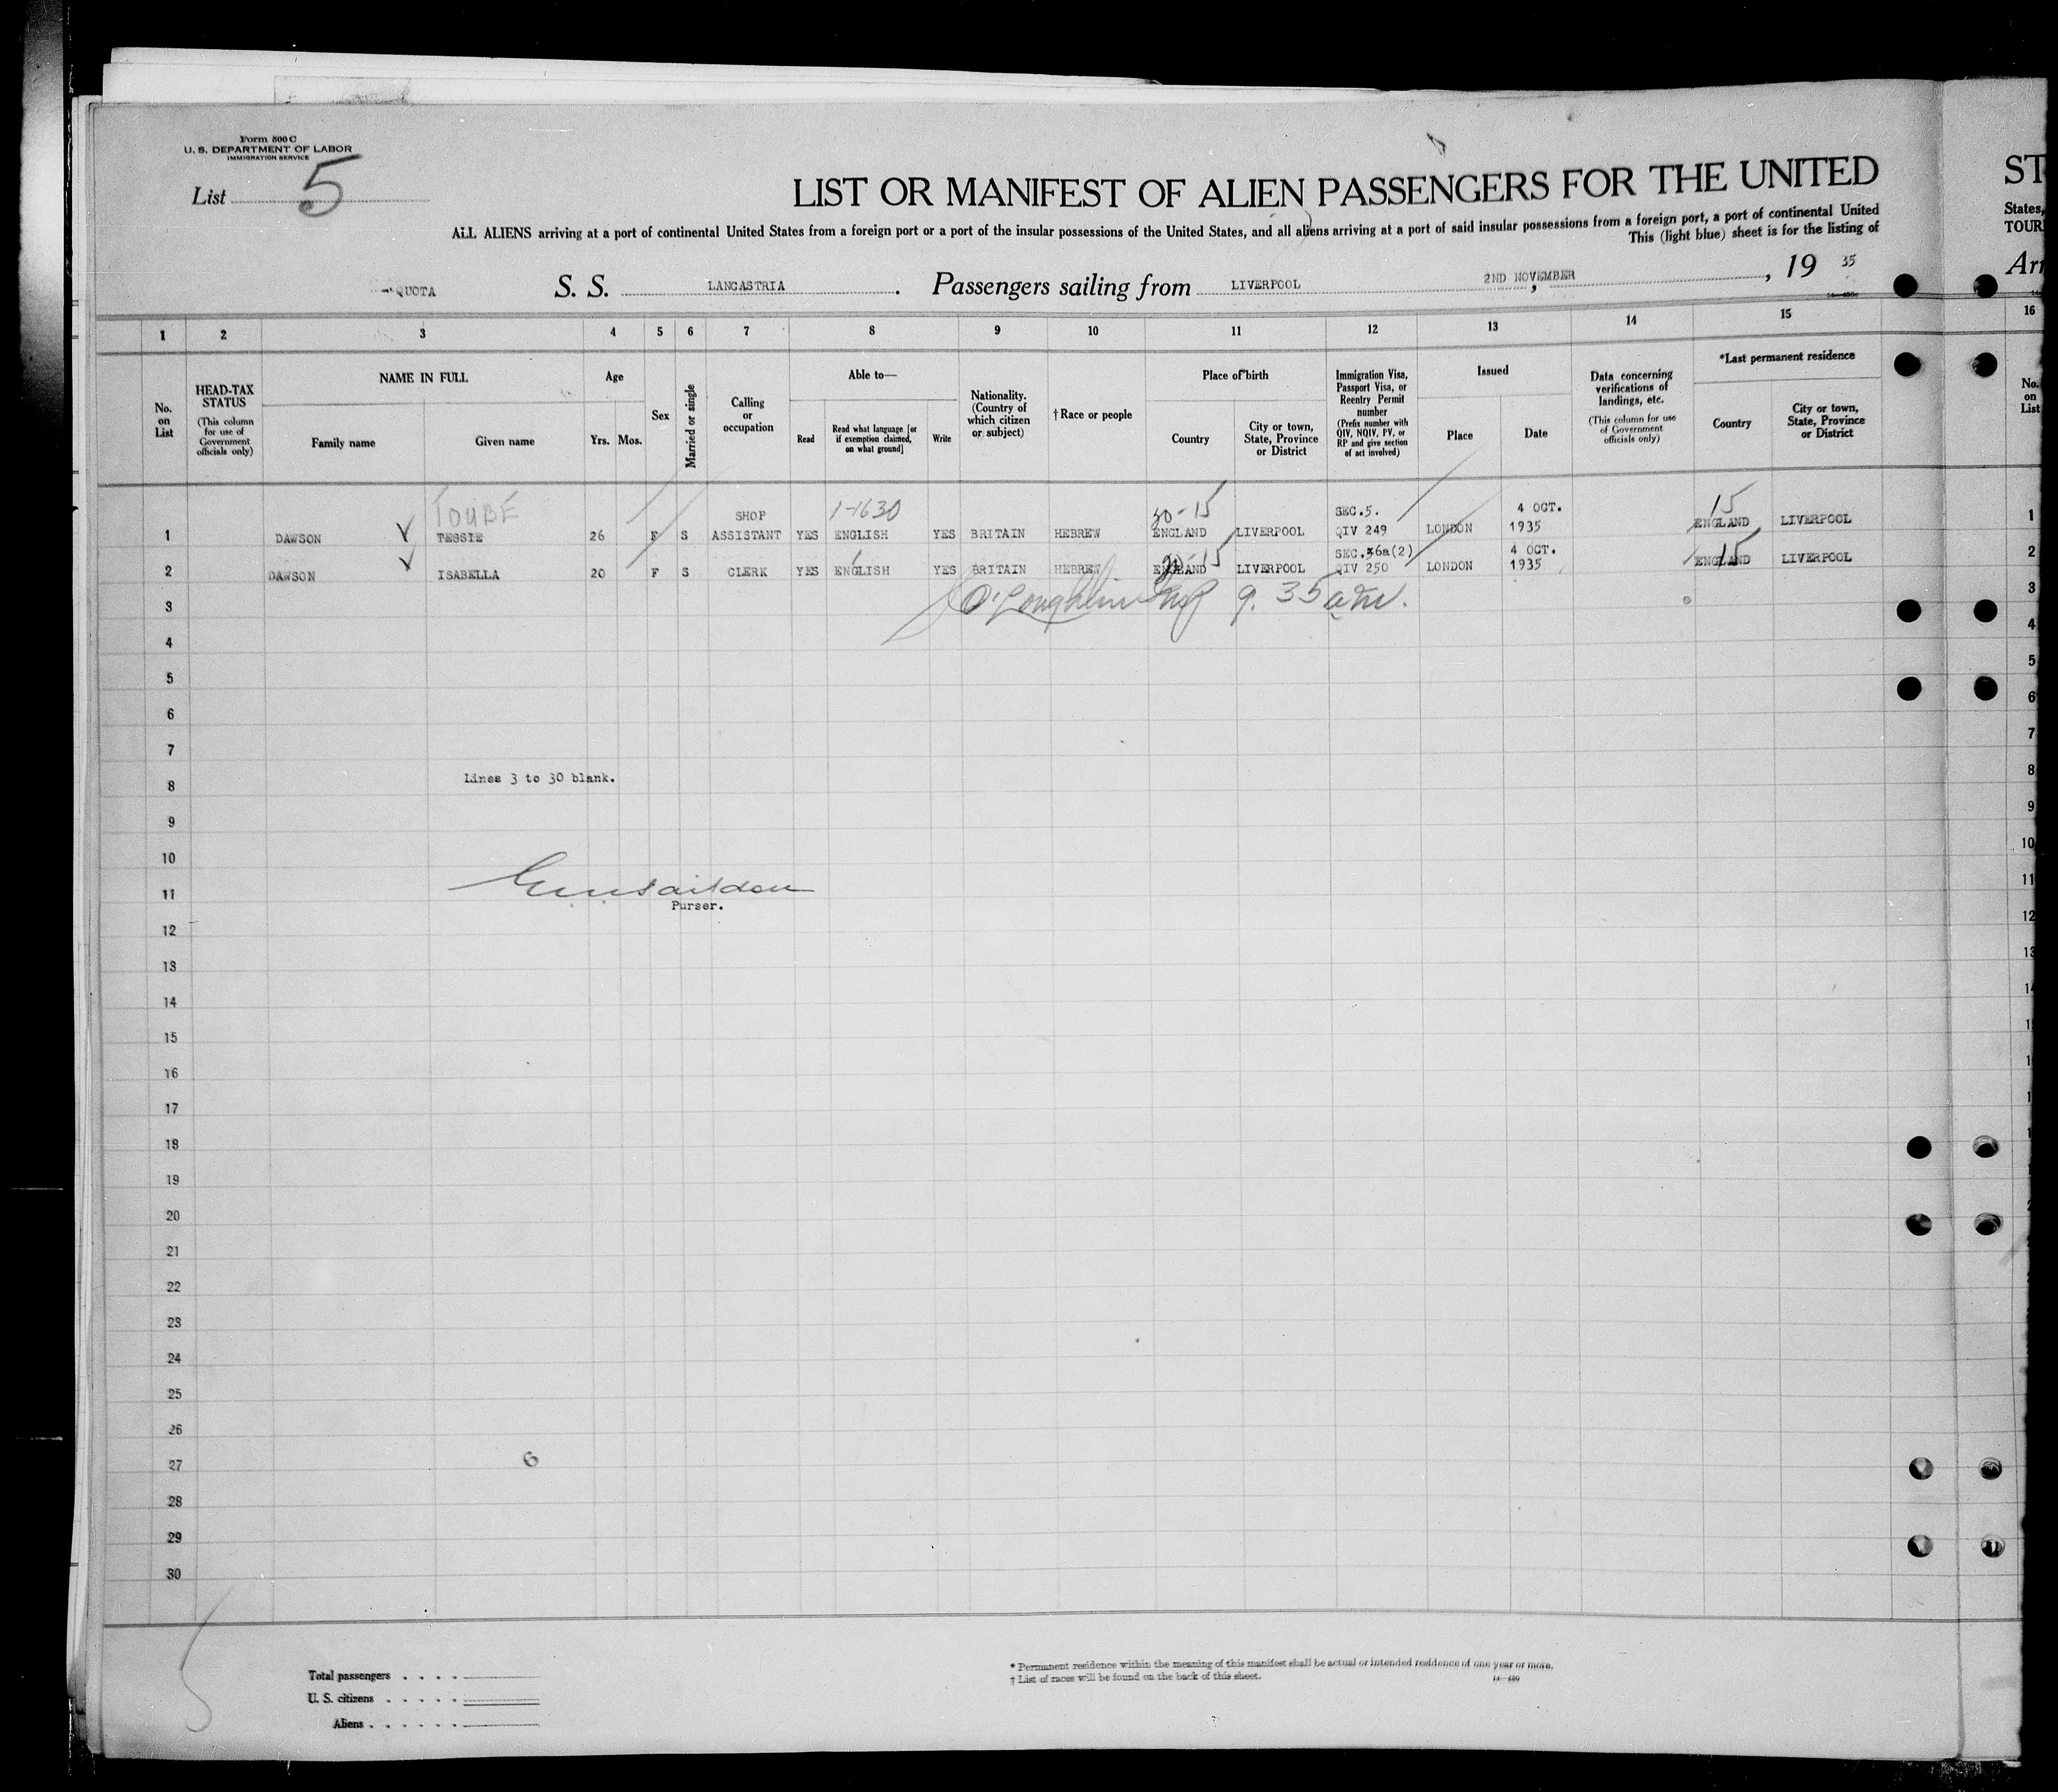 Form 500 C
U. S. DEPARTMENT OF LABOR
IMMIGRATION SERVICE
List 5
LIST OR MANIFEST OF ALIEN PASSENGERS FOR THE UNITED
ST
ALL ALIENS arriving at a port of continental United States from a foreign port or a port of the insular possessions of the United States, and all aliens arriving at a port of said insular possessions from a foreign port, a port of continental United
States,
This (light blue) sheet is for the listing of
TOUR
QUOTA S. S. LANCASTRIA. Passengers sailing from LIVERPOOL, 2ND NOVEMBER, 19 35
Arr
1 2 3 4 5 6 7 8 9 10 11 12 13 14 15 16
No. on List
HEAD-TAX STATUS (This column for use of Government officials only)
NAME IN FULL
Family name Given name
Age
Yrs. Mos.
Sex
Married or single
Calling or occupation
Able to—
Read
Read what language [or if exemption claimed, on what ground]
Write
Nationality. (Country of which citizen or subject)
† Race or people
Place of birth
Country
City or town, State, Province or District
Immigration Visa, Passport Visa, or Reentry Permit number (Prefix number with QIV, NQIV, PV, or RP and give section of act involved)
Issued
Place Date
Data concerning verifications of landings, etc. (This column for use of Government officials only)
*Last permanent residence
Country
City or town, State, Province or District
No. on List
TOUBE 1-1630 30-15 15
1 DAWSON TESSIE 26 F S SHOP ASSISTANT YES ENGLISH YES BRITAIN HEBREW ENGLAND LIVERPOOL SEC.5. QIV 249 LONDON 4 OCT. 1935 ENGLAND LIVERPOOL 1
2 DAWSON ISABELLA 20 F S CLERK YES ENGLISH YES BRITAIN HEBREW ENGLAND LIVERPOOL SEC. 6a(2) QIV 250 LONDON 4 OCT. 1935 ENGLAND LIVERPOOL 2
3 O'Loughlin 9.35 am. 3
4 4
5 5
6 6
7 7
Lines 3 to 30 blank.
8 8
9 9
10 10
11 11
Purser.
12 12
13 13
14
15
16
17
18
19
20
21
22
23
24
25
26
27 6
28
29
30
Total passengers
U. S. citizens
Aliens
* Permanent residence within the meaning of this manifest shall be actual or intended residence of one year or more.
† List of races will be found on the back of this sheet.